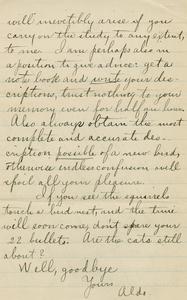 will inevitably arise if you
carry on the study to any extent,
to me. I am perhaps also in
a position to give advice: get a
note book and write your des-
criptions, trust nothing to your
memory even for half an hour.
Also always obtain the most
complete and accurate des-
cription posible of a new bird,
otherwise endless confusion will
spoil all your pleasure.
If you see the squirrels
touch a bird nest, and the time
will soon come, don't spare your
22 bullets. Are the cats still
about?
Well, goodbye
Yours
Aldo